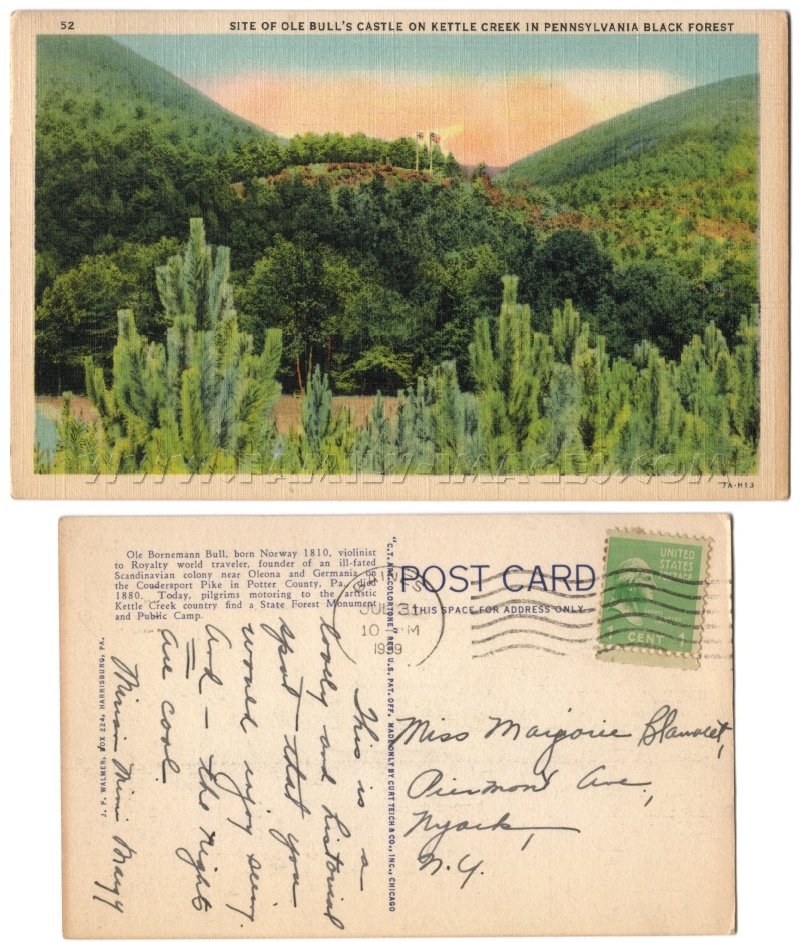 52
SITE OF OLE BULL'S CASTLE ON KETTLE CREEK IN PENNSYLVANIA BLACK FOREST
WWW.FAMILY-IMAGES.COM
7A-H13
Ole Bornemann Bull, born Norway 1810, violinist
to Royalty world traveler, founder of an ill-fated
Scandinavian colony near Oleona and Germania on
the Coudersport Pike in Potter County, Pa., died
1880. Today, pilgrims motoring to the artistic
Kettle Creek country find a State Forest Monument
and Public Camp.
J. P. WALMER, BOX 224, HARRISBURG, PA.
"C.T. ART-COLORTONE" REG. U.S. PAT. OFF. MADE ONLY BY CURT TEICH & CO., INC., CHICAGO
POST CARD
THIS SPACE FOR ADDRESS ONLY
JUL 31
10 M
1939
UNITED
STATES
POSTAGE
CENT 1
This is a
lovely and historical
spot - that you
would enjoy seeing.
And - the nights
are cool
Miriam Mimi
Miss Marjorie Blauvelt,
Piermont Ave,
Nyack,
N.Y.